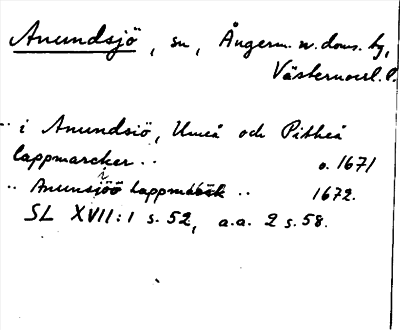 Anundsjö, sn, Ångerm. n. doms. hy,
Västernorrl. l.
.. i Anundsiö, Umeå och Pitheå
lappmarcker .. o. 1671
.. Anunsiöö Lappmarck .. 1672.
SL XVII:1 s. 52, a.a. 2 s. 58.